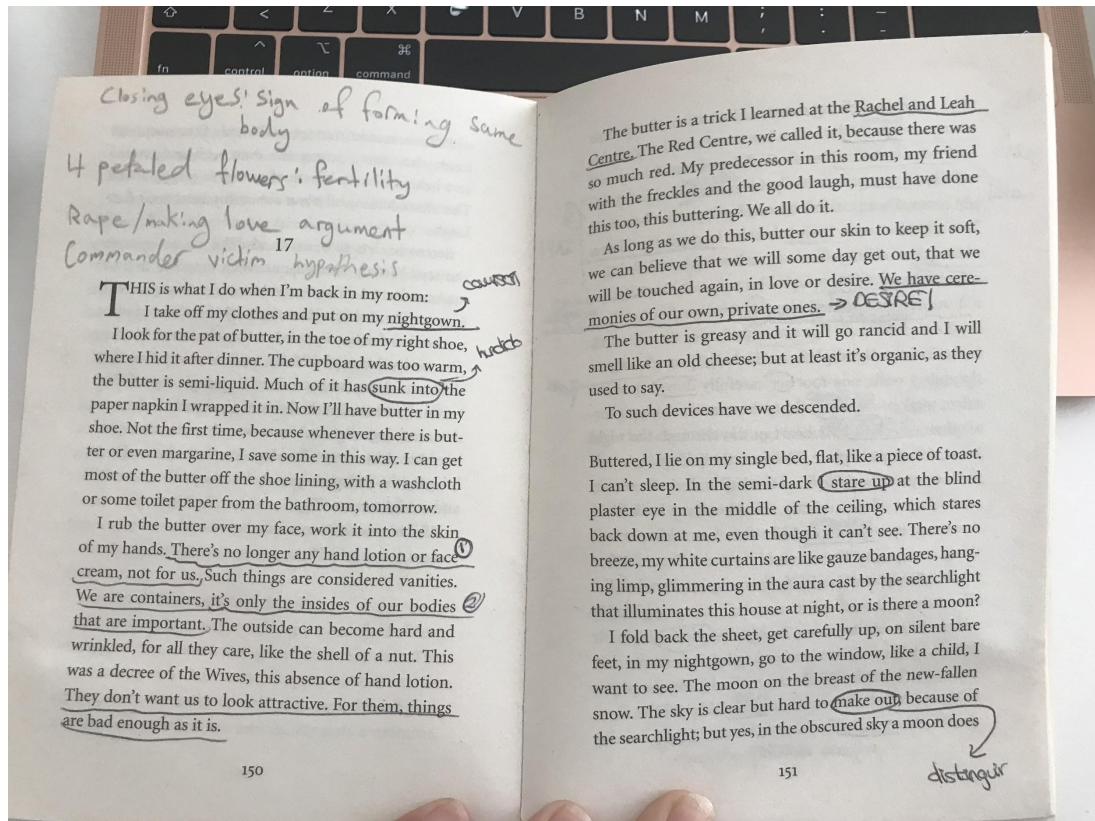 <
Z
X
V
B
N
M
;
,
:
.
–
fn
^
control
⌥
option
⌘
command
Closing eyes: sign of forming same
body
4 petaled flowers: fertility
Rape/making love argument
Commander victim hypothesis
17
camisón
THIS is what I do when I'm back in my room:
I take off my clothes and put on my nightgown.
I look for the pat of butter, in the toe of my right shoe,
where I hid it after dinner. The cupboard was too warm,
the butter is semi-liquid. Much of it has sunk into the
paper napkin I wrapped it in. Now I'll have butter in my
shoe. Not the first time, because whenever there is but-
ter or even margarine, I save some in this way. I can get
most of the butter off the shoe lining, with a washcloth
or some toilet paper from the bathroom, tomorrow.
I rub the butter over my face, work it into the skin
of my hands. There's no longer any hand lotion or face 1
cream, not for us. Such things are considered vanities.
We are containers, it's only the insides of our bodies 2
that are important. The outside can become hard and
wrinkled, for all they care, like the shell of a nut. This
was a decree of the Wives, this absence of hand lotion.
They don't want us to look attractive. For them, things
are bad enough as it is.
150
The butter is a trick I learned at the Rachel and Leah
Centre. The Red Centre, we called it, because there was
so much red. My predecessor in this room, my friend
with the freckles and the good laugh, must have done
this too, this buttering. We all do it.
As long as we do this, butter our skin to keep it soft,
we can believe that we will some day get out, that we
will be touched again, in love or desire. We have cere-
monies of our own, private ones. → DESIRE!
The butter is greasy and it will go rancid and I will
smell like an old cheese; but at least it's organic, as they
used to say.
To such devices have we descended.
Buttered, I lie on my single bed, flat, like a piece of toast.
I can't sleep. In the semi-dark I stare up at the blind
plaster eye in the middle of the ceiling, which stares
back down at me, even though it can't see. There's no
breeze, my white curtains are like gauze bandages, hang-
ing limp, glimmering in the aura cast by the searchlight
that illuminates this house at night, or is there a moon?
I fold back the sheet, get carefully up, on silent bare
feet, in my nightgown, go to the window, like a child, I
want to see. The moon on the breast of the new-fallen
snow. The sky is clear but hard to make out, because of
the searchlight; but yes, in the obscured sky a moon does
151
distinguir